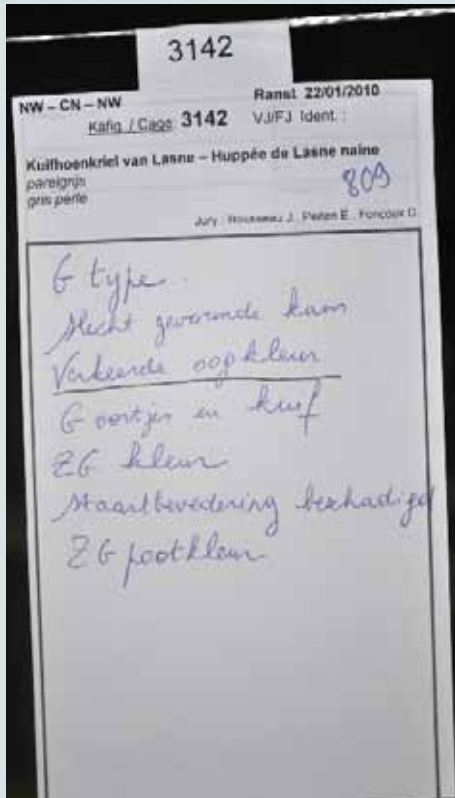 3142
NW – CN – NW
Ranst 22/01/2010
Kafig / Cage 3142 VJ/FJ Ident. :
Kuifhoenkriel van Lasne – Huppée de Lasne naine
parelgrijs
gris perle
809
Jury : Rousseau J., Peeten E., Foncoux D.
G type
Slecht gevormde kam
Verkeerde oogkleur
G oortjes en kuif
ZG kleur
Staartbevedering beschadigd
ZG pootkleur